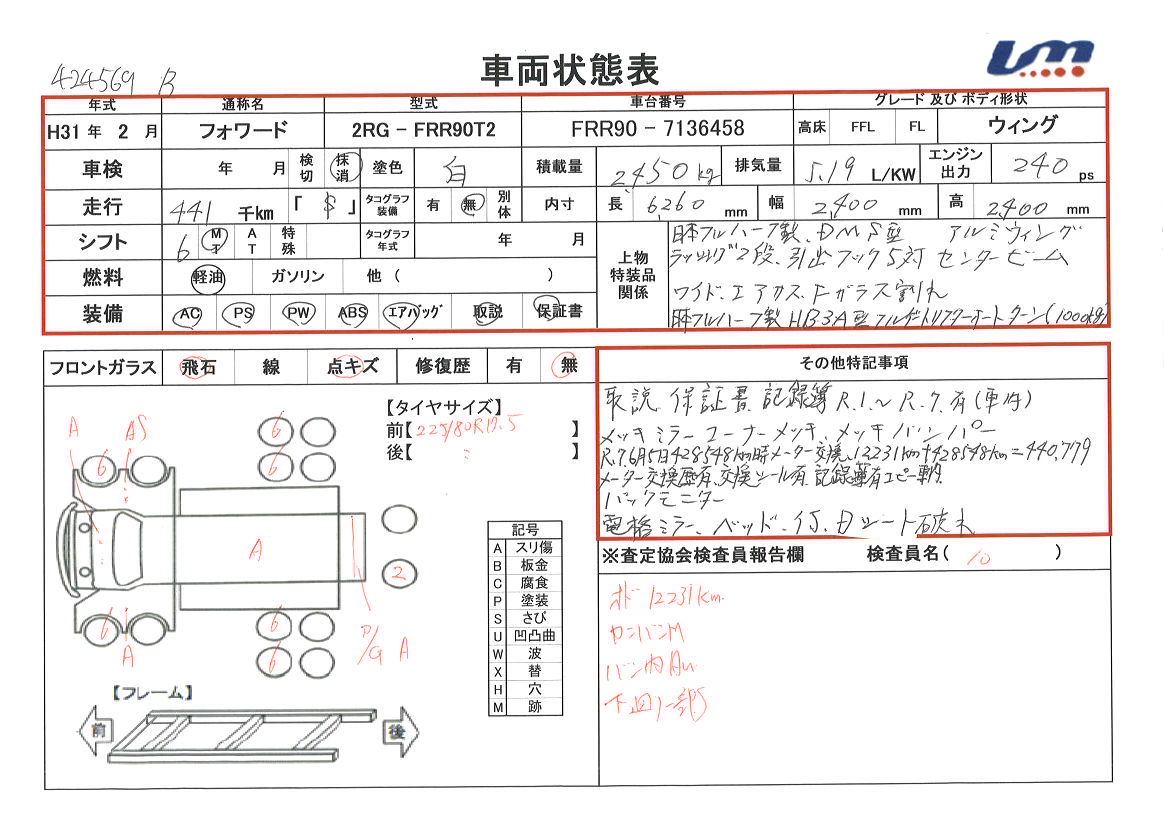 424569 B
車両状態表
um
年式 通称名 型式 車台番号 グレード 及び ボディ形状
H31 年 2 月 フォワード 2RG - FRR90T2 FRR90 - 7136458 高床 FFL FL ウィング
車検 年 月 検切 抹消 塗色 白 積載量 2,450 kg 排気量 5.19 L/KW エンジン出力 240 ps
走行 441 千km 「 $ 」 タコグラフ装備 有 無 別体 内寸 長 6260 mm 幅 2,400 mm 高 2,400 mm
シフト 6 MT AT 特殊 タコグラフ年式 年 月
燃料 軽油 ガソリン 他 ( )
装備 AC PS PW ABS エアバッグ 取説 保証書
上物特装品関係
日本フルハーフ製、DMS型 アルミウィング
ラッシング2段、引出フック5対 センタービーム
ワイド、エアサス、Fガラス割れ
日本フルハーフ製 HB3A型 アルゲートリフター オートターン(1000kg)
フロントガラス 飛石 線 点キズ 修復歴 有 無
【タイヤサイズ】
前【225/80R17.5 】
後【 〃 】
A AS
6 6
6 6
A
2
6 6
6 6
A
P/G A
【フレーム】
前 後
記号
A スリ傷
B 板金
C 腐食
P 塗装
S さび
U 凹凸曲
W 波
X 替
H 穴
M 跡
その他特記事項
取説 保証書 記録簿 R.1.~R.7.有(車内)
メッキミラー コーナーメッキ、メッキバンパー
R.7.6月5日428548km時メーター交換、12,231km+428548km=440,779
メーター交換歴有、交換シール有、記録簿有コピー車内
バックモニター
電格ミラー、ベッド、イス、Dシート破れ
※査定協会検査員報告欄 検査員名( 10 )
オド 12231km.
カンバンM
バン内AU
下回り一部S